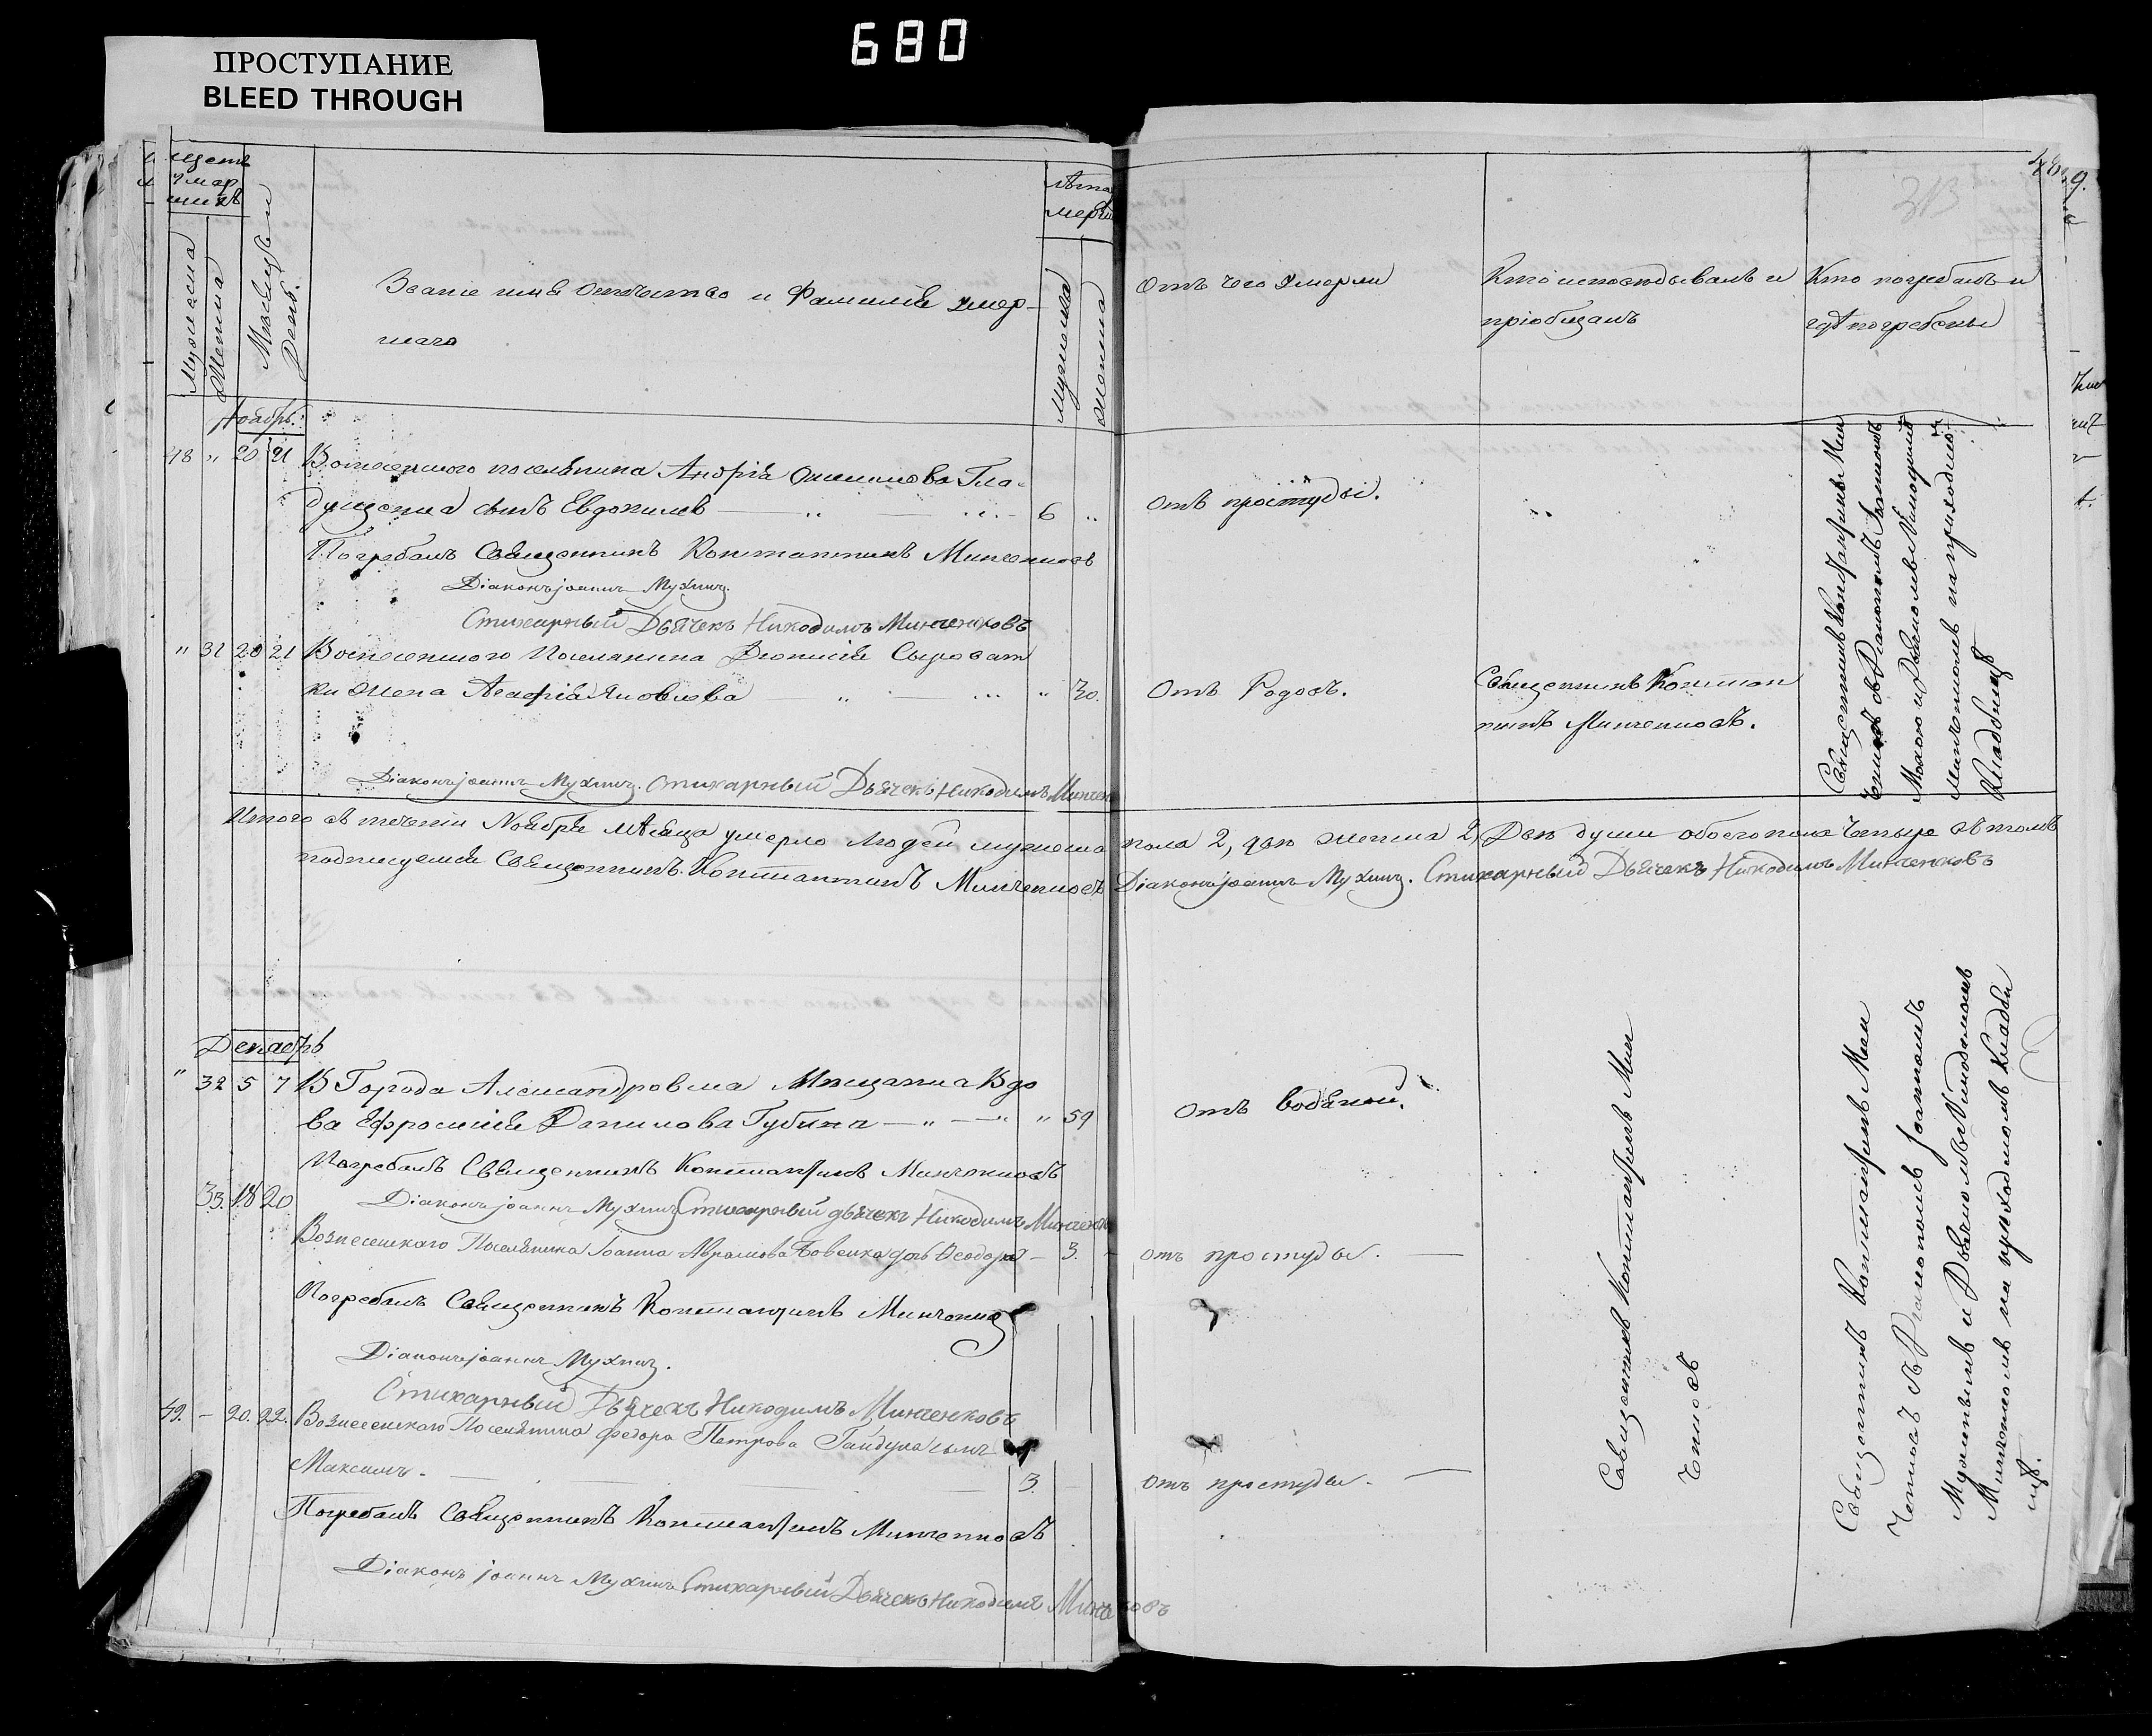 680
ПРОСТУПАНИЕ
BLEED THROUGH
Щетъ
умер
шихъ
Мужеска
Женска
Мѣсяцъ и
День.
Званіе имя Отечество и Фамилія умер-
шаго
Лѣта
мерш
мужеска
женска
Отъ чего Умерли
Кто исповѣдывалъ и
пріобщалъ
Кто погребалъ и
гдѣ погребены
313
Ноябрь.
48 " 20 21 Вознесенского поселянина Андрія
дущенка сынъ Евдокимъ 6 "
отъ простуды.
Погребалъ Священникъ Константинъ Минченковъ
Діаконъ Іоаннъ Мухинъ.
Стихарный Дьячекъ Никодимъ Минченковъ
" 31 20 21 Вознесенского Поселянина Діонисія Сыроват
ки жена Агафія Яковлева " 30.
Отъ Родовъ.
Священникъ Констан
тинъ Минченковъ.
Діаконъ Іоаннъ Мухинъ. Стихарный Дьячекъ Никодимъ Минченк
Священникъ Константинъ Мин
ченковъ съ Діакономъ Іоанномъ
Мухинымъ и Дьячкомъ Никодимомъ
Минченковымъ на приходскомъ
Кладбищѣ
Итого въ теченіи Ноября мѣсяца умерло людей мужеска пола 2, да женска 2, Два души обоего пола четыре въ томъ
подписуемся Священникъ Константинъ Минченковъ Діаконъ Іоаннъ Мухинъ. Стихарный Дьячекъ Никодимъ Минченковъ
Декабрь
" 32 5 7 В Города Александровска Мещанка Вдо
ва Ефросинія Данилова Губина " 59
отъ водяной.
Погребалъ Священникъ Константинъ Минченковъ
Діаконъ Іоаннъ Мухинъ Стихарный дьячекъ Никодимъ Минченк
33. 18 20 Вознесенскаго Поселянина Іоанна Абрамова Бовенка дочь Ѳеодора 3.
отъ простуды.
Погребалъ Священникъ Константинъ Минченков
Діаконъ Іоаннъ Мухинъ.
Стихарный Дьячекъ Никодимъ Минченковъ
49. 20. 22. Вознесенскаго Поселянина Федора Петрова Гайдука сынъ
Максимъ. 3.
отъ простуды.
Погребалъ Священникъ Константинъ Минченковъ
Діаконъ Іоаннъ Мухинъ Стихарный Дьячекъ Никодимъ Минченковъ
Священникъ Константинъ Мин
ченковъ
Священникъ Константинъ Мин
ченковъ съ Діакономъ Іоанномъ
Мухинымъ и Дьячкомъ Никодимомъ
Минченковымъ на приходскомъ кладби
щѣ.